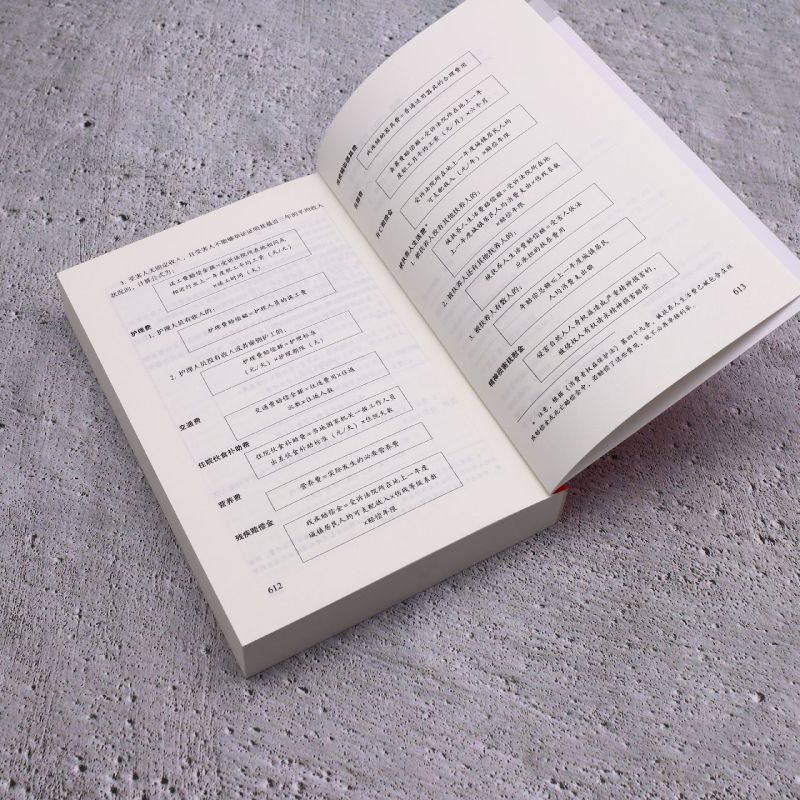 3. 受害人无固定收入，且受害人不能够举证证明其最近三年的平均收入
状况的，计算公式为：
误工费赔偿金额=受诉法院所在地相同或
相近行业上一年度职工平均工资（元/天）
×误工时间（天）
护理费
1. 护理人员有收入的：
护理费赔偿额=护理人员的误工费
2. 护理人员没有收入或者雇佣护工的：
护理费赔偿额=护理标准
（元/天）×护理期限（天）
交通费
交通费赔偿金额=往返费用×往返
次数×往返人数
住院伙食补助费
住院伙食补助费=当地国家机关一般工作人员
出差伙食补助标准（元/天）×住院天数
营养费
营养费=实际发生的必要营养费
残疾赔偿金
残疾赔偿金=受诉法院所在地上一年度
城镇居民人均可支配收入×伤残等级系数
×赔偿年限
612
残疾辅助器具费
残疾辅助器具费=普通适用器具的合理费用
丧葬费
丧葬费赔偿额=受诉法院所在地上一年
度职工月平均工资（元/月）×六个月
死亡赔偿金
受诉法院所在地上一年度城镇居民人均可
支配收入（元/年）×赔偿年限
被扶养人生活费
1. 被扶养人没有其他扶养人的：
被扶养人生活费赔偿额=受诉法院所在地
上一年度城镇居民人均消费支出×伤残系数
×赔偿年限
2. 被扶养人还有其他扶养人的：
被扶养人生活费赔偿额=受害人依法
应承担的扶养费用
3. 被扶养人有数人的：
年赔偿总额≤上一年度城镇居民
人均消费支出额
精神损害抚慰金
侵害自然人人身权益造成严重精神损害的，
被侵权人有权请求精神损害赔偿
注意：根据《消费者权益保护法》第四十九条，被扶养人生活费已被包含在残
疾赔偿金或死亡赔偿金中，若赔偿了这些费用，就不必再重复列举。
613